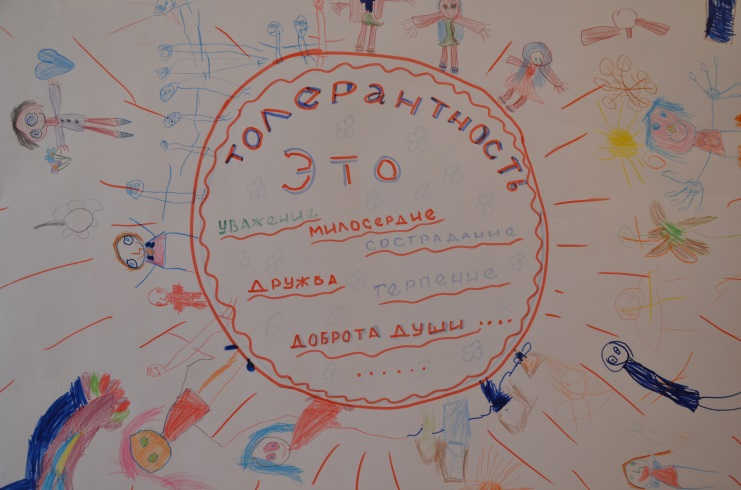 ТОЛЕРАНТНОСТЬ
ЭТО
УВАЖЕНИЕ
МИЛОСЕРДИЕ
СОСТРАДАНИЕ
ДРУЖБА
ТЕРПЕНИЕ
ДОБРОТА ДУШИ ....
......